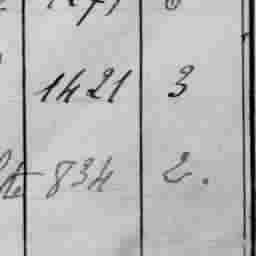 1421 3
834 2.